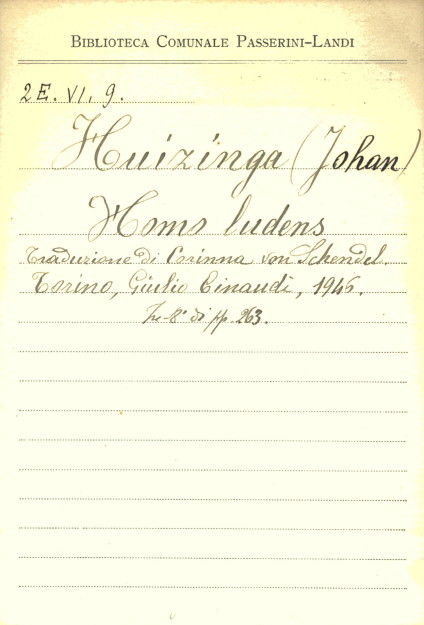 BIBLIOTECA COMUNALE PASSERINI-LANDI
2E. VI. 9.
Huizinga (Johan)
Homo ludens
Traduzione di Corinna von Schendel.
Torino, Giulio Einaudi, 1946.
In-8° di pp. 263.